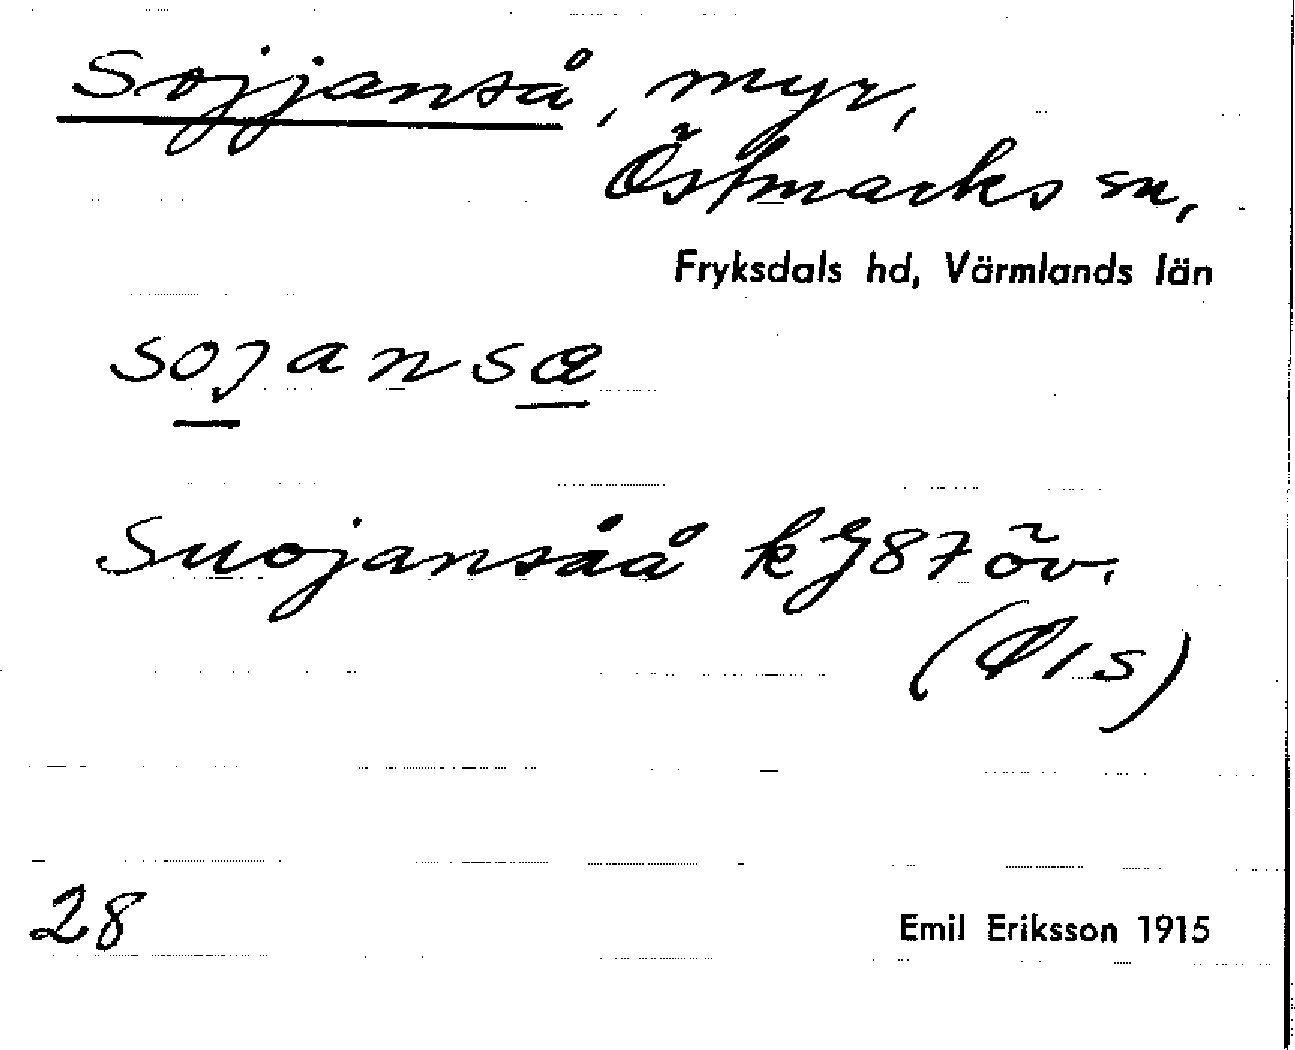 Sojjanså, myr,
Östmarks sn,
Fryksdals hd, Värmlands län
sojansæ
Suojansåå kg87öv.
28
Emil Eriksson 1915